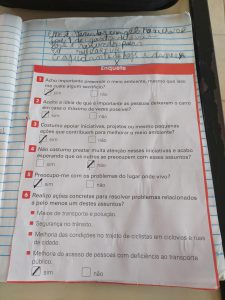 Enquete
1 Acho importante preservar o meio ambiente, mesmo que isso
me custe algum sacrifício?
sim não
2 Acato a ideia de que é importante as pessoas deixarem o carro
em casa o máximo de vezes possível?
sim não
3 Costumo apoiar iniciativas, projetos ou mesmo pequenas
ações que contribuem para melhorar o meio ambiente?
sim não
4 Não costumo prestar muita atenção nessas iniciativas e acabo
esperando que os outros se preocupem com esses assuntos?
sim não
5 Preocupo-me com os problemas do lugar onde vivo?
sim não
6 Realizo ações concretas para resolver problemas relacionados
a pelo menos um destes assuntos?
Meios de transporte e poluição.
Segurança no trânsito.
Melhoria das condições no trajeto de ciclistas em ciclovias e ruas
da cidade.
Melhoria do acesso de pessoas com deficiência ao transporte
público.
sim não